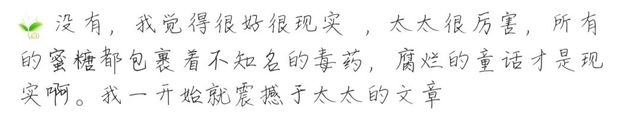 没有，我觉得很好很现实 ，太太很厉害，所有
的蜜糖都包裹着不知名的毒药，腐烂的童话才是现
实啊。我一开始就震撼于太太的文章